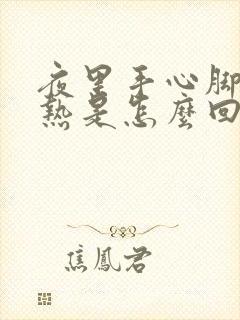 夜里手心脚
热是怎麼回
焦鳳君